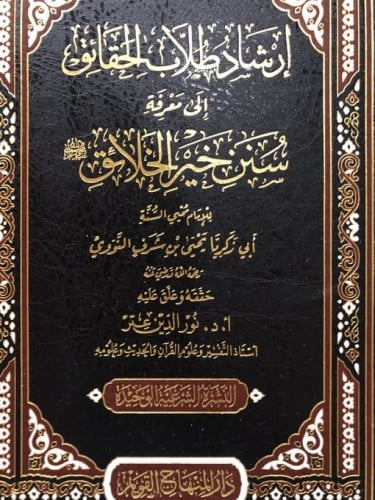 إرشاد طلاب الحقائق
إلى معرفة
سنن خير الخلائق ﷺ
للإمام محيي السنة
أبي زكريا يحيى بن شرف النووي
رحمه الله ورضي عنه
حققه وعلق عليه
أ.د. نور الدين عتر
أستاذ التفسير وعلوم القرآن والحديث وعلومه
النشرة الشرعية الوحيدة
دار المنهاج القويم